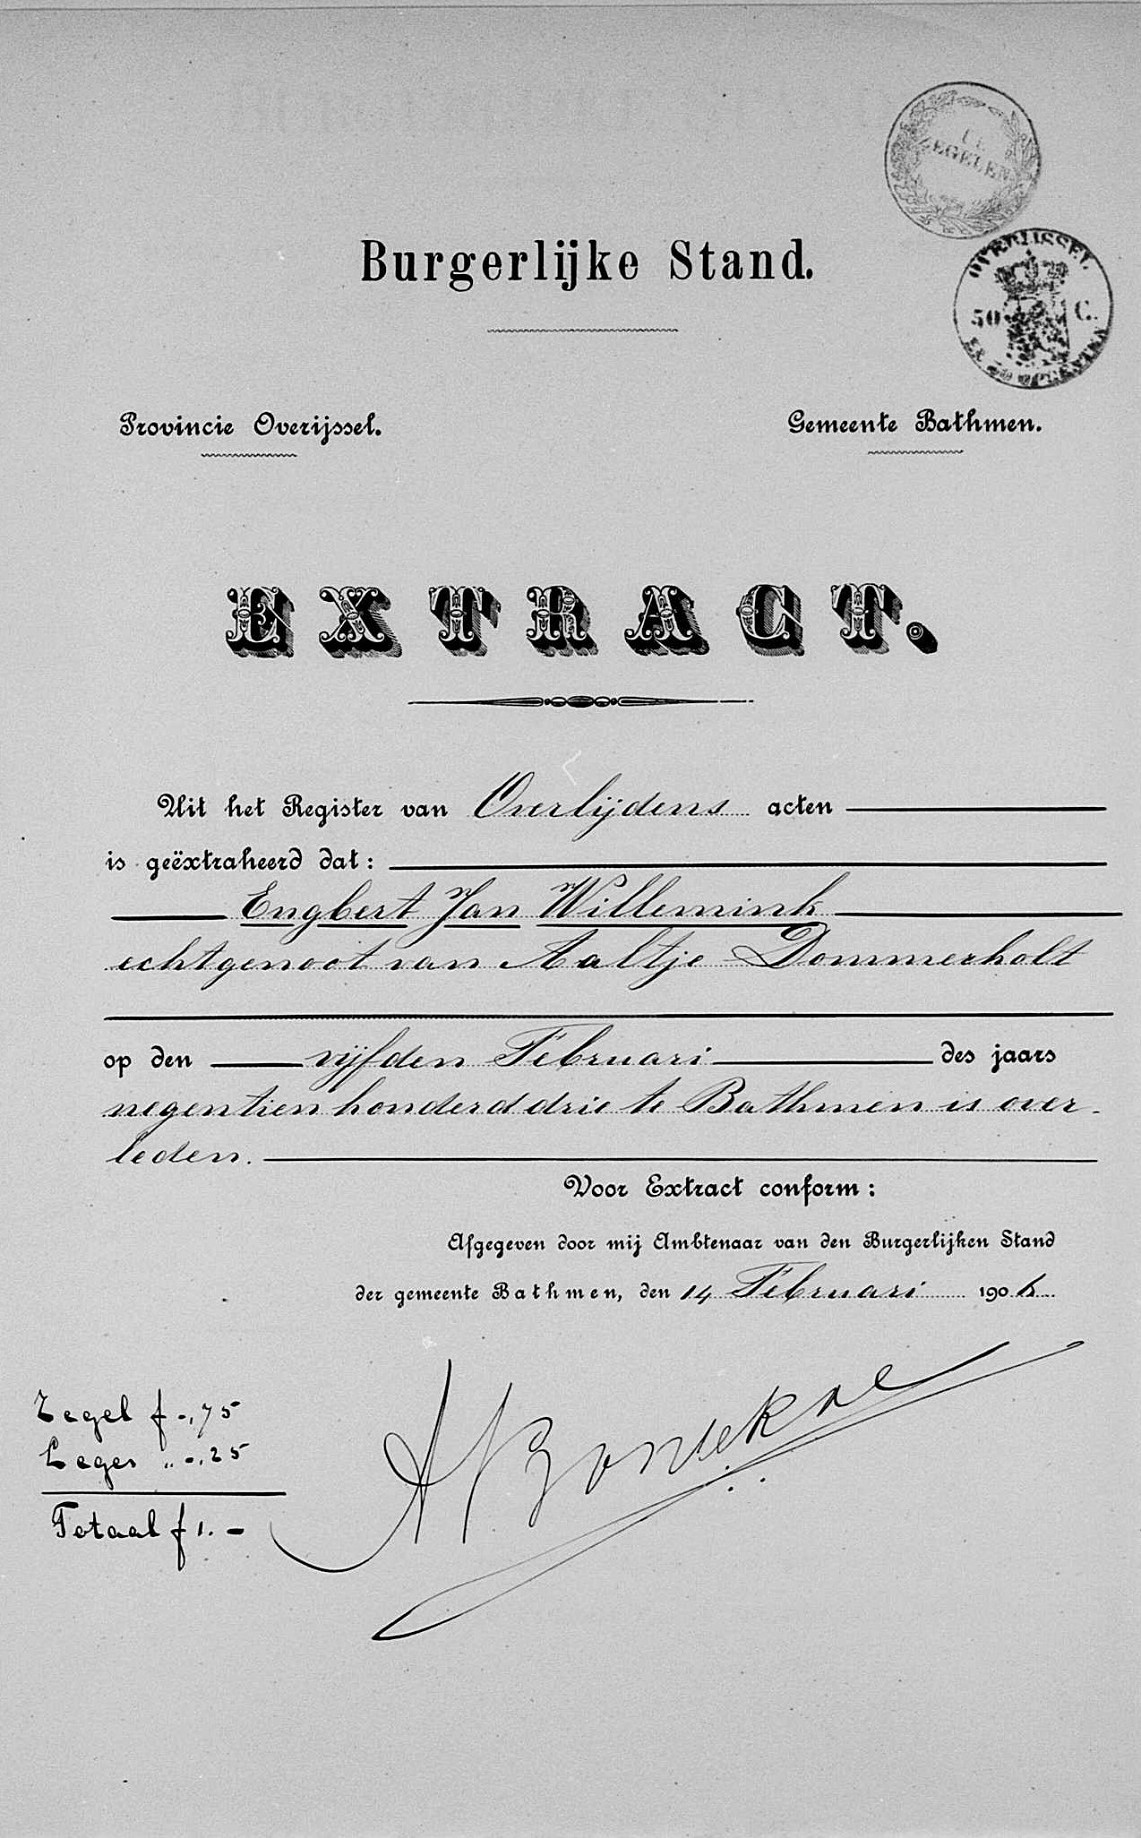 ZEGELEN
Burgerlijke Stand.
OVERIJSSEL
50 C.
Provincie Overijssel.
Gemeente Bathmen.
EXTRACT.
Uit het Register van Overlijdens acten
is geëxtraheerd dat:
Engbert Jan Willemink
echtgenoot van Aaltje Dommerholt
op den vijfden Februari des jaars
negentien honderd drie te Bathmen is over-
leden.
Voor Extract conform:
Afgegeven door mij Ambtenaar van den Burgerlijken Stand
der gemeente Bathmen, den 14 Februari 190
Zegel f -,75
Leges " -,25
Totaal f 1.-